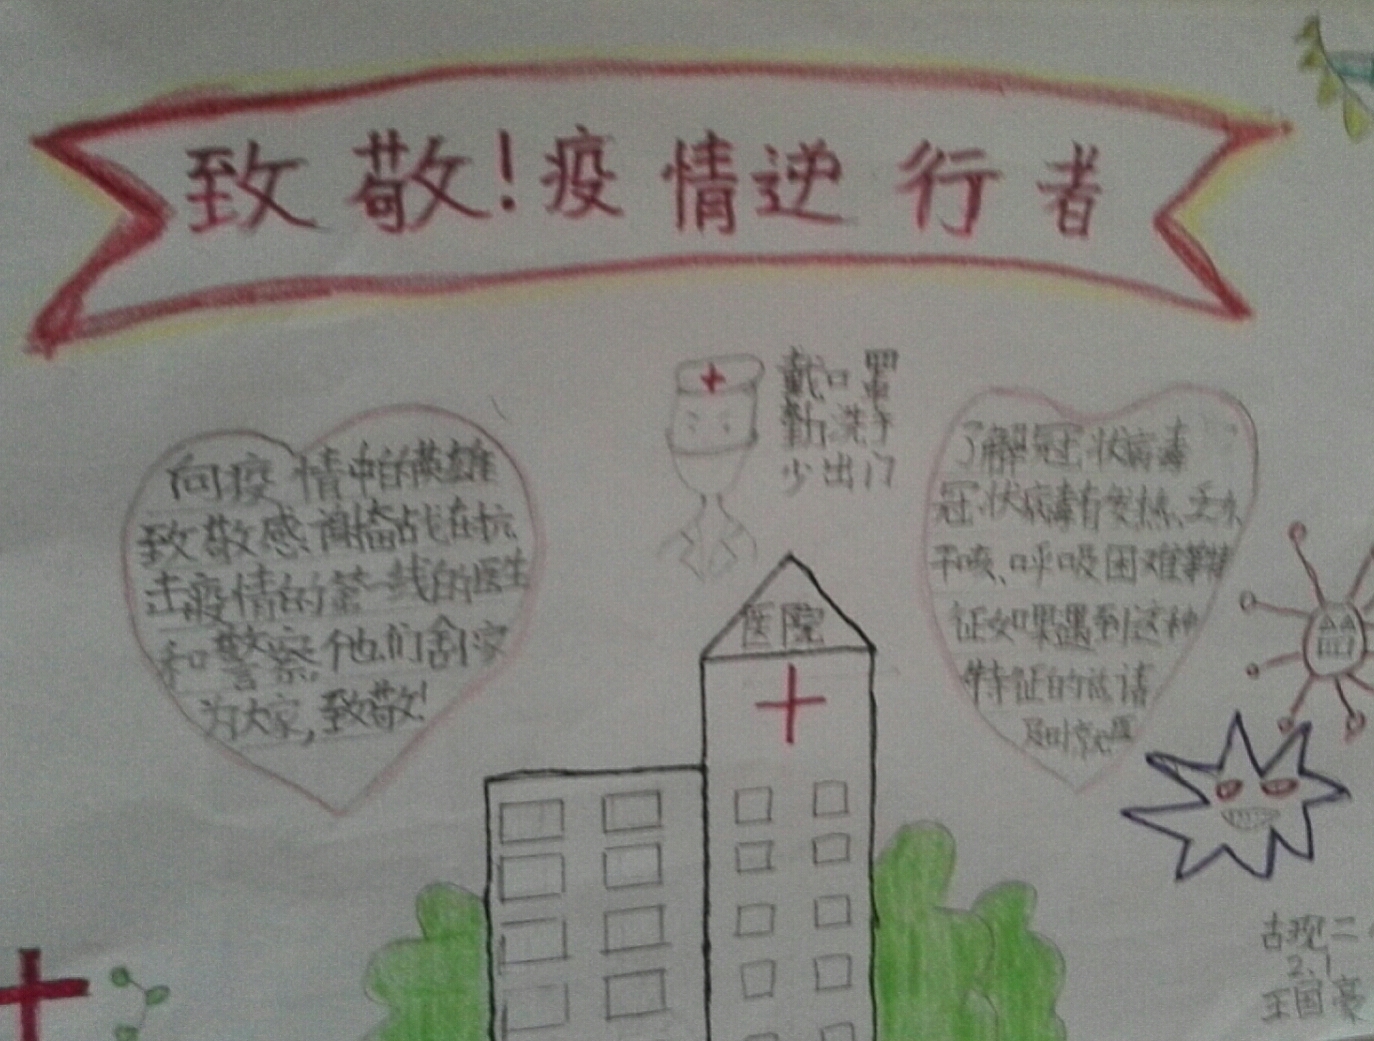 致敬!疫情逆行者
戴口罩
勤洗手
少出门
向疫情中的英雄
致敬感谢奋战在抗
击疫情的第一线的医生
和警察,他们舍家
为大家,致敬!
了解冠状病毒
冠状病毒有发热、乏力、
干咳、呼吸困难等特
征如果遇到这种
特征的话请
及时就医
医院
古现二小
2.1
王国豪